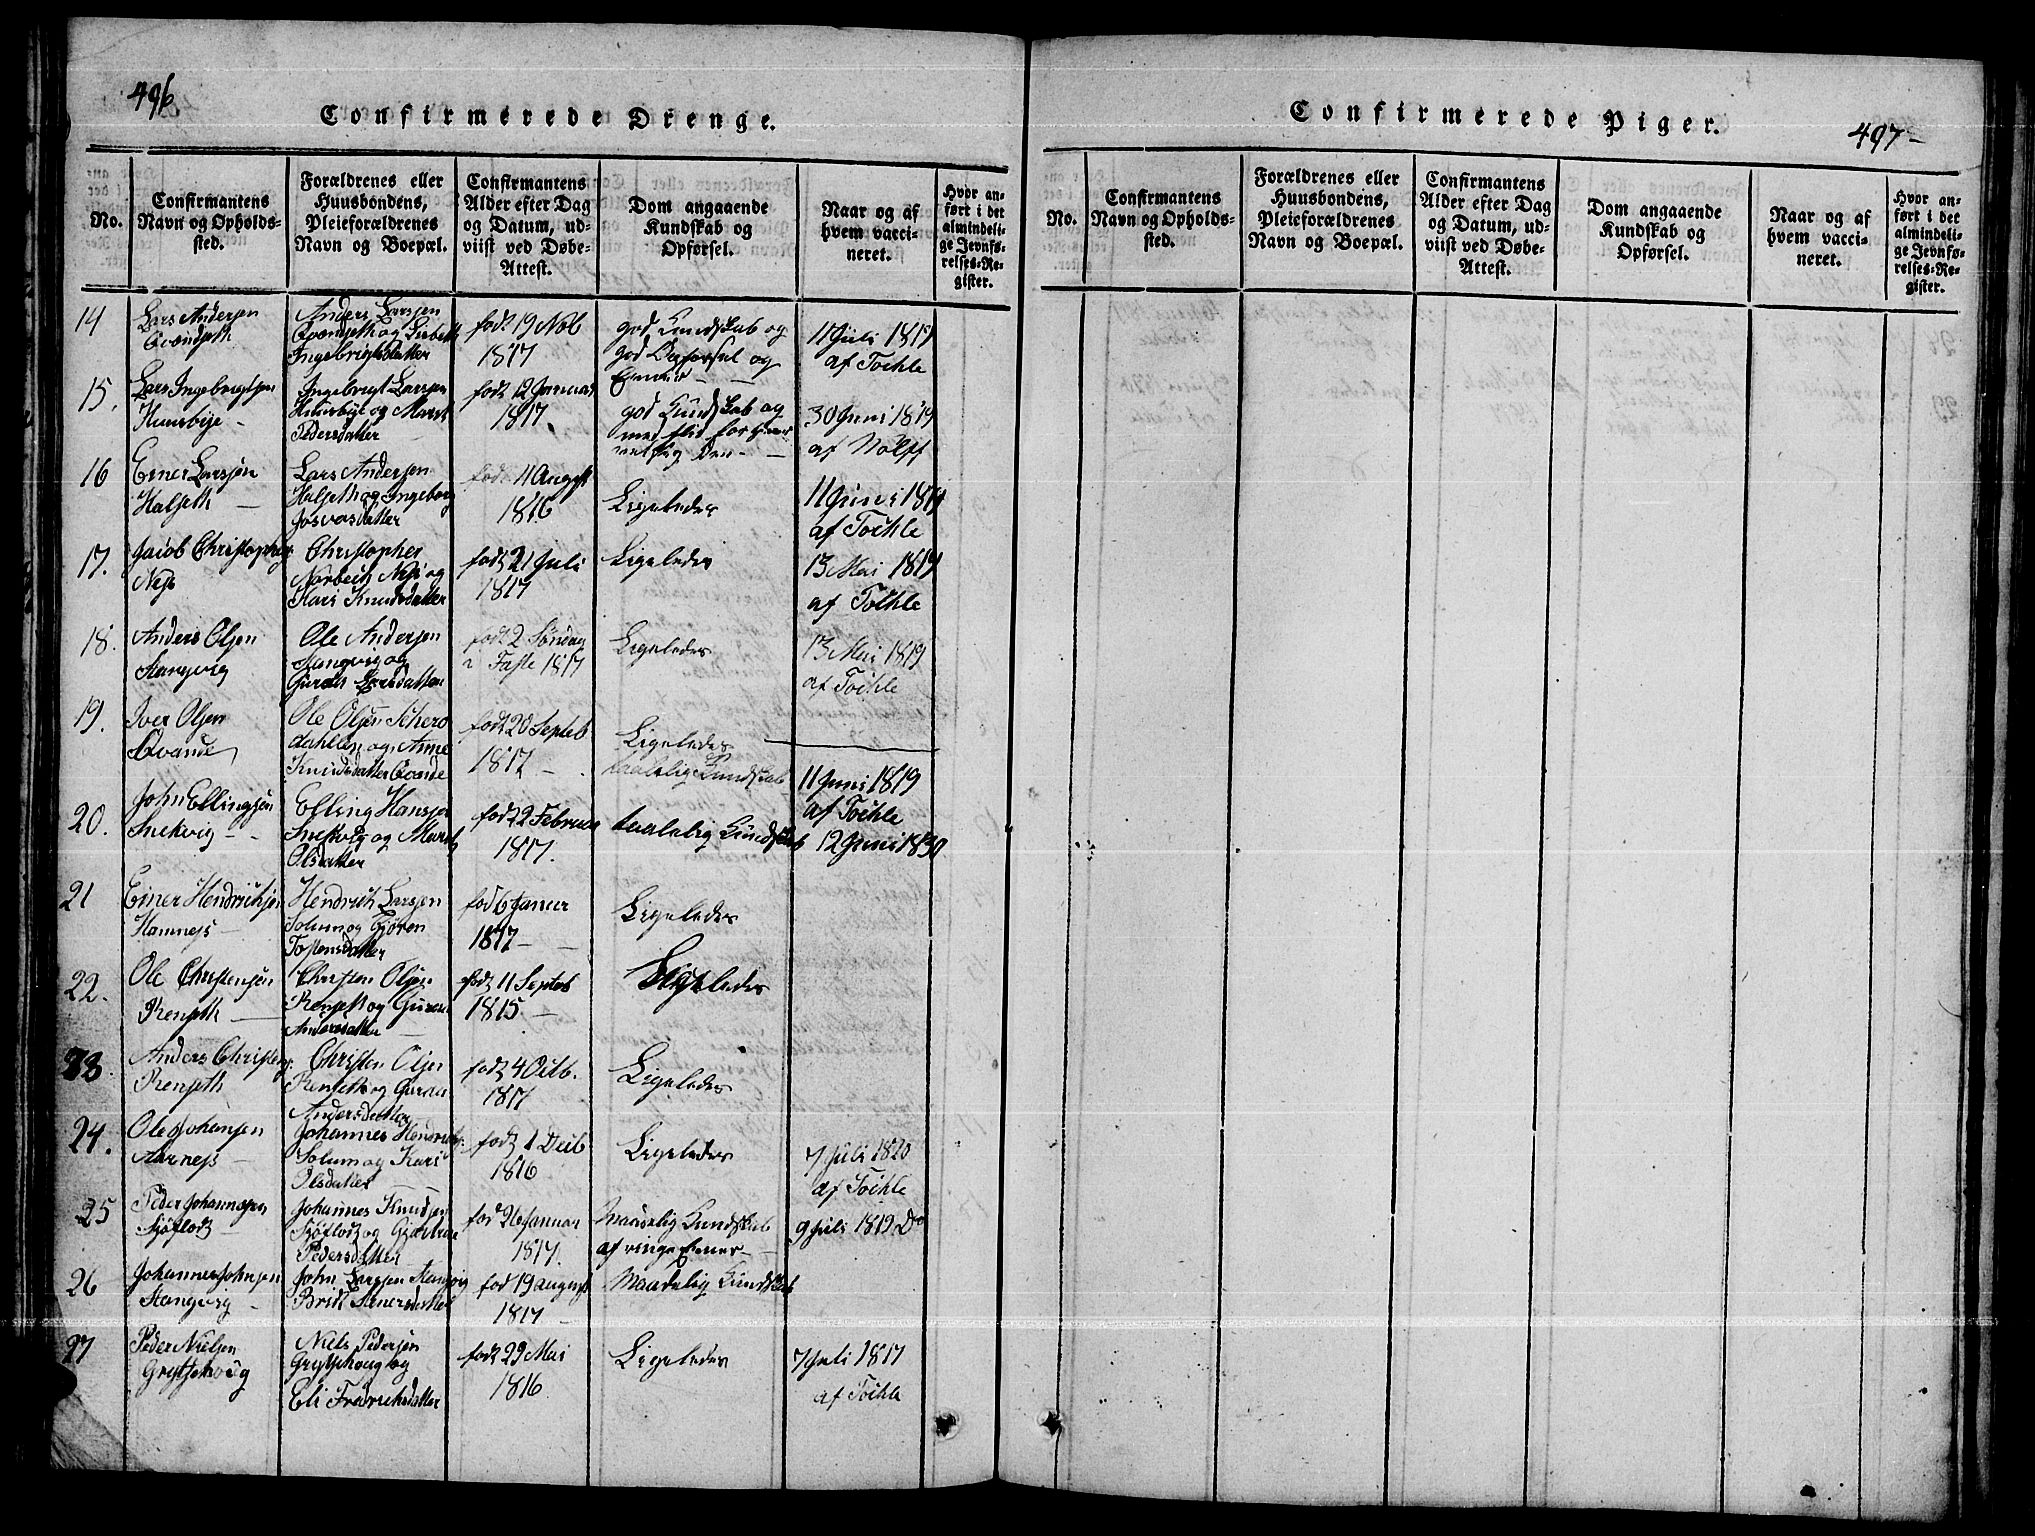 496
Confirmerede Drenge.
No.
Confirmantens
Navn og Opholds-
sted.
Forældrenes eller
Huusbondens,
Pleieforældrenes
Navn og Boepæl.
Confirmantens
Alder efter Dag
og Datum, ud-
viist ved Døbe-
Attest.
Dom angaaende
Kundskab og
Opførsel.
Naar og af
hvem vacci-
neret.
Hvor an-
ført i det
almindeli-
ge Jevnfø-
relses-Re-
gister.
14
Lars Andersen
Qvendseth
Anders Larsen
Qvendseth og Lisbeth
Ingebrigtsdatter
født 19 Nob
1817
god Kundskab og
god Opførsel og
Emner
11 Juli 1819
af Toihle
15.
Lars Ingebrigtsen
Husbye -
Ingebrigt Larsen
Husbye og Marit
Pedersdatter
født 12 Januar
1817.
god Kundskab og
med flid
30 Juni 1819
af Wolff
16
Einer Larssøn
Halseth -
Lars Andersen
Halseth og Ingeborg
Josvasdatter
født 11 August
1816
Ligeledes
11 Juni 1819
af Toihle
17.
Jacob Christophers.
Ness
Christopher
Norbech Ness og
Kari Knudsdatter
født 21 Juli
1817
Ligeledes
13 Mai 1819
af Toihle
18.
Anders Olsen
Stangvig
Ole Andersen
Stangvig og
Guroe Larsdatter
født 2 Søndag
i Faste 1817
Ligeledes
13 Mai 1819
af Toihle
19.
Iver Olsen
Qvande
Ole Olsen Schero
dahlen og Anne
Knudsdatter Qvande
født 20 Septeb
1817 -
Ligeledes
taalelig Kundskab
11 Juni 1819
af Toihle
20.
John Ellingsen
Snekvig -
Elling Hansen
Snekvig og Marit
Olsdatter
født 22 Februar
1817.
taalelig Kundskab
12 Juni 1830
21
Einer Hendrichsen
Hamnes -
Hendrich Larsen
Solum og Gjøren
Tostensdatter
fød 6 Januer
1817 -
Ligeledes
22.
Ole Christensøn
Renseth
Christen Olsen
Renseth og Guroe
Andersdatter
født 11 Septeb
1815 -
Ligeledes
23
Anders Christens.
Renseth
Christen Olsen
Renseth og Guroe
Andersdatter
født 4 Octb.
1817
Ligeledes
24.
Ole Johansen
Aarness -
Johannes Hendrichs.
Solum og Kari
Olsdatter
født 1 Decb
1816
Ligeledes
7 Juli 1820
af Toihle
25
Peder Johannesen
Sjøflodt -
Johannes Knudsen
Sjøflodt og Gjertrue
Pedersdatter
fød 26 Januar
1817.
Maadelig Kundskab
af ringe Emner -
9 Juli 1819 Do
26
Johannes Johnsen
Stangvig -
John Larssen Stangvig
Bridt Stenersdatter
fød 19 august
1817 -
Maadelig Kundskab
27
Peder Nielsen
Grytschoug
Niels Pedersen
Grytschoug og
Eli Fredrichsdatter
født 29 Mai
1816
Ligeledes
7 Juli 1817
af Toihle
Confirmerede Piger.
497 -
No.
Confirmantens
Navn og Opholds-
sted.
Forældrenes eller
Huusbondens,
Pleieforældrenes
Navn og Boepæl.
Confirmantens
Alder efter Dag
og Datum, ud-
viist ved Døbe-
Attest.
Dom angaaende
Kundskab og
Opførsel.
Naar og af
hvem vacci-
neret.
Hvor an-
ført i det
almindeli-
ge Jevnfø-
relses-Re-
gister.